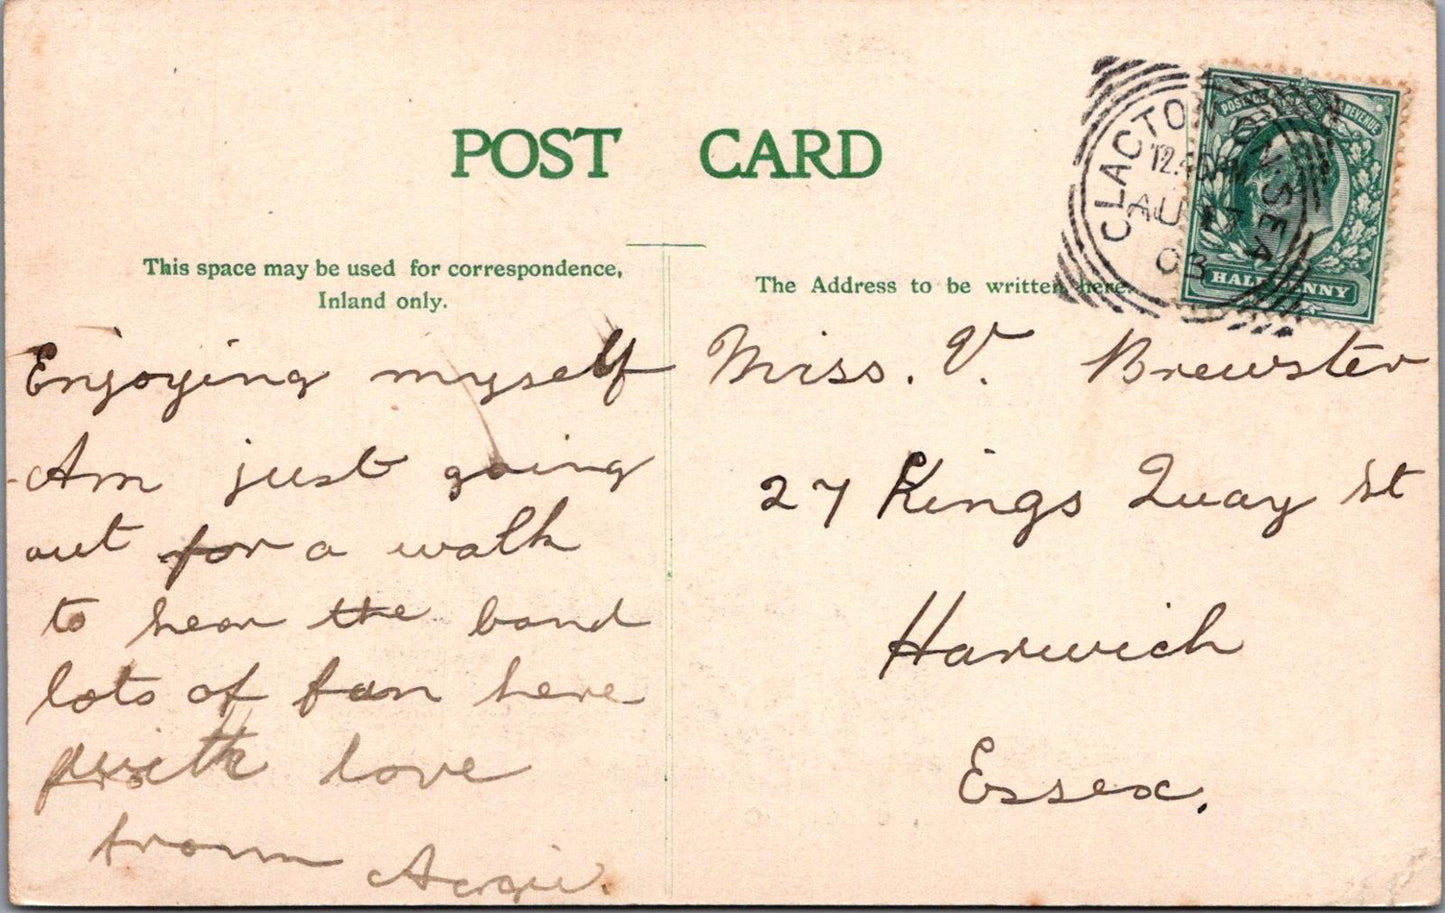 POST CARD
This space may be used for correspondence,
Inland only.
The Address to be written here.
CLACTON ON SEA
AU 17
03
POSTAGE REVENUE
HALFPENNY
Enjoying myself
Am just going
out for a walk
to hear the band
lots of fun here
with love
from
Miss. V. Brewster
27 Kings Quay St
Harwich
Essex.